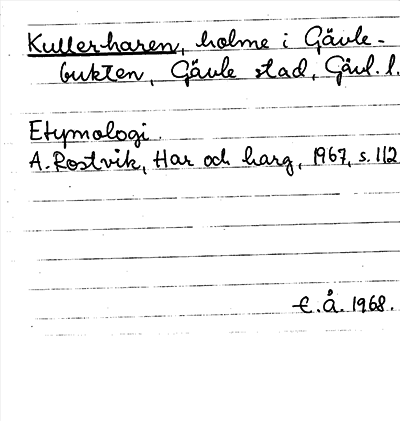 Kullerharen, holme i Gävle-
bukten, Gävle stad, Gävl. l.
Etymologi.
A. Rostvik, Har och harg, 1967, s. 112
E. Å. 1968.